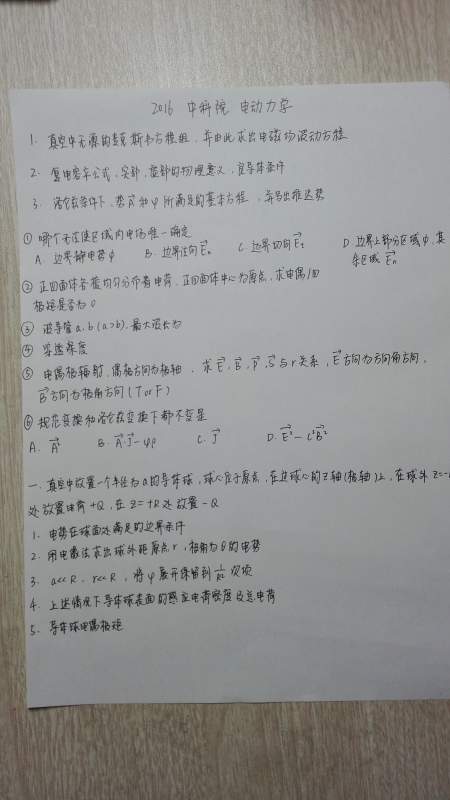 2016 中科院 电动力学
1. 真空中无源的麦克斯韦方程组, 并由此求出电磁场波动方程
2. 复电容率公式, 实部, 虚部的物理意义, 良导体条件
3. 洛仑兹条件下, 势A和φ所满足的基本方程, 并写出推迟势
① 哪个无法使区域内电场唯一确定
A. 边界静电势φ B. 边界法向Eₙ C. 边界切向Eₜ D. 边界上部分区域φ, 其
余区域Eₙ
② 正四面体各面均匀分布着电荷, 正四面体中心为原点, 求电偶/四
极矩是否为0
③ 波导管a.b(a>b). 最大波长为
④ 穿透深度
⑤ 电偶极辐射, 偶极方向为极轴, 求E, B, P, S与r关系, E方向为方向角方向,
B方向为极角方向(T or F)
⑥ 规范变换和洛仑兹变换下都不变是
A. A² B. A·J-φρ C. J D. E²-c²B²
一. 真空中放置一个半径为a的导体球, 球心位于原点, 在过球心的z轴(极轴)上, 在球外z=-R
处放置电荷+Q, 在z=+R处放置-Q
1. 电势在球面处满足的边界条件
2. 用电像法求出球外距原点r, 极角为θ的电势
3. a<<R. r<<R, 将φ展开保留到1/R²次项
4. 上述情况下导体球表面的感应电荷密度及总电荷
5. 导体球电偶极矩